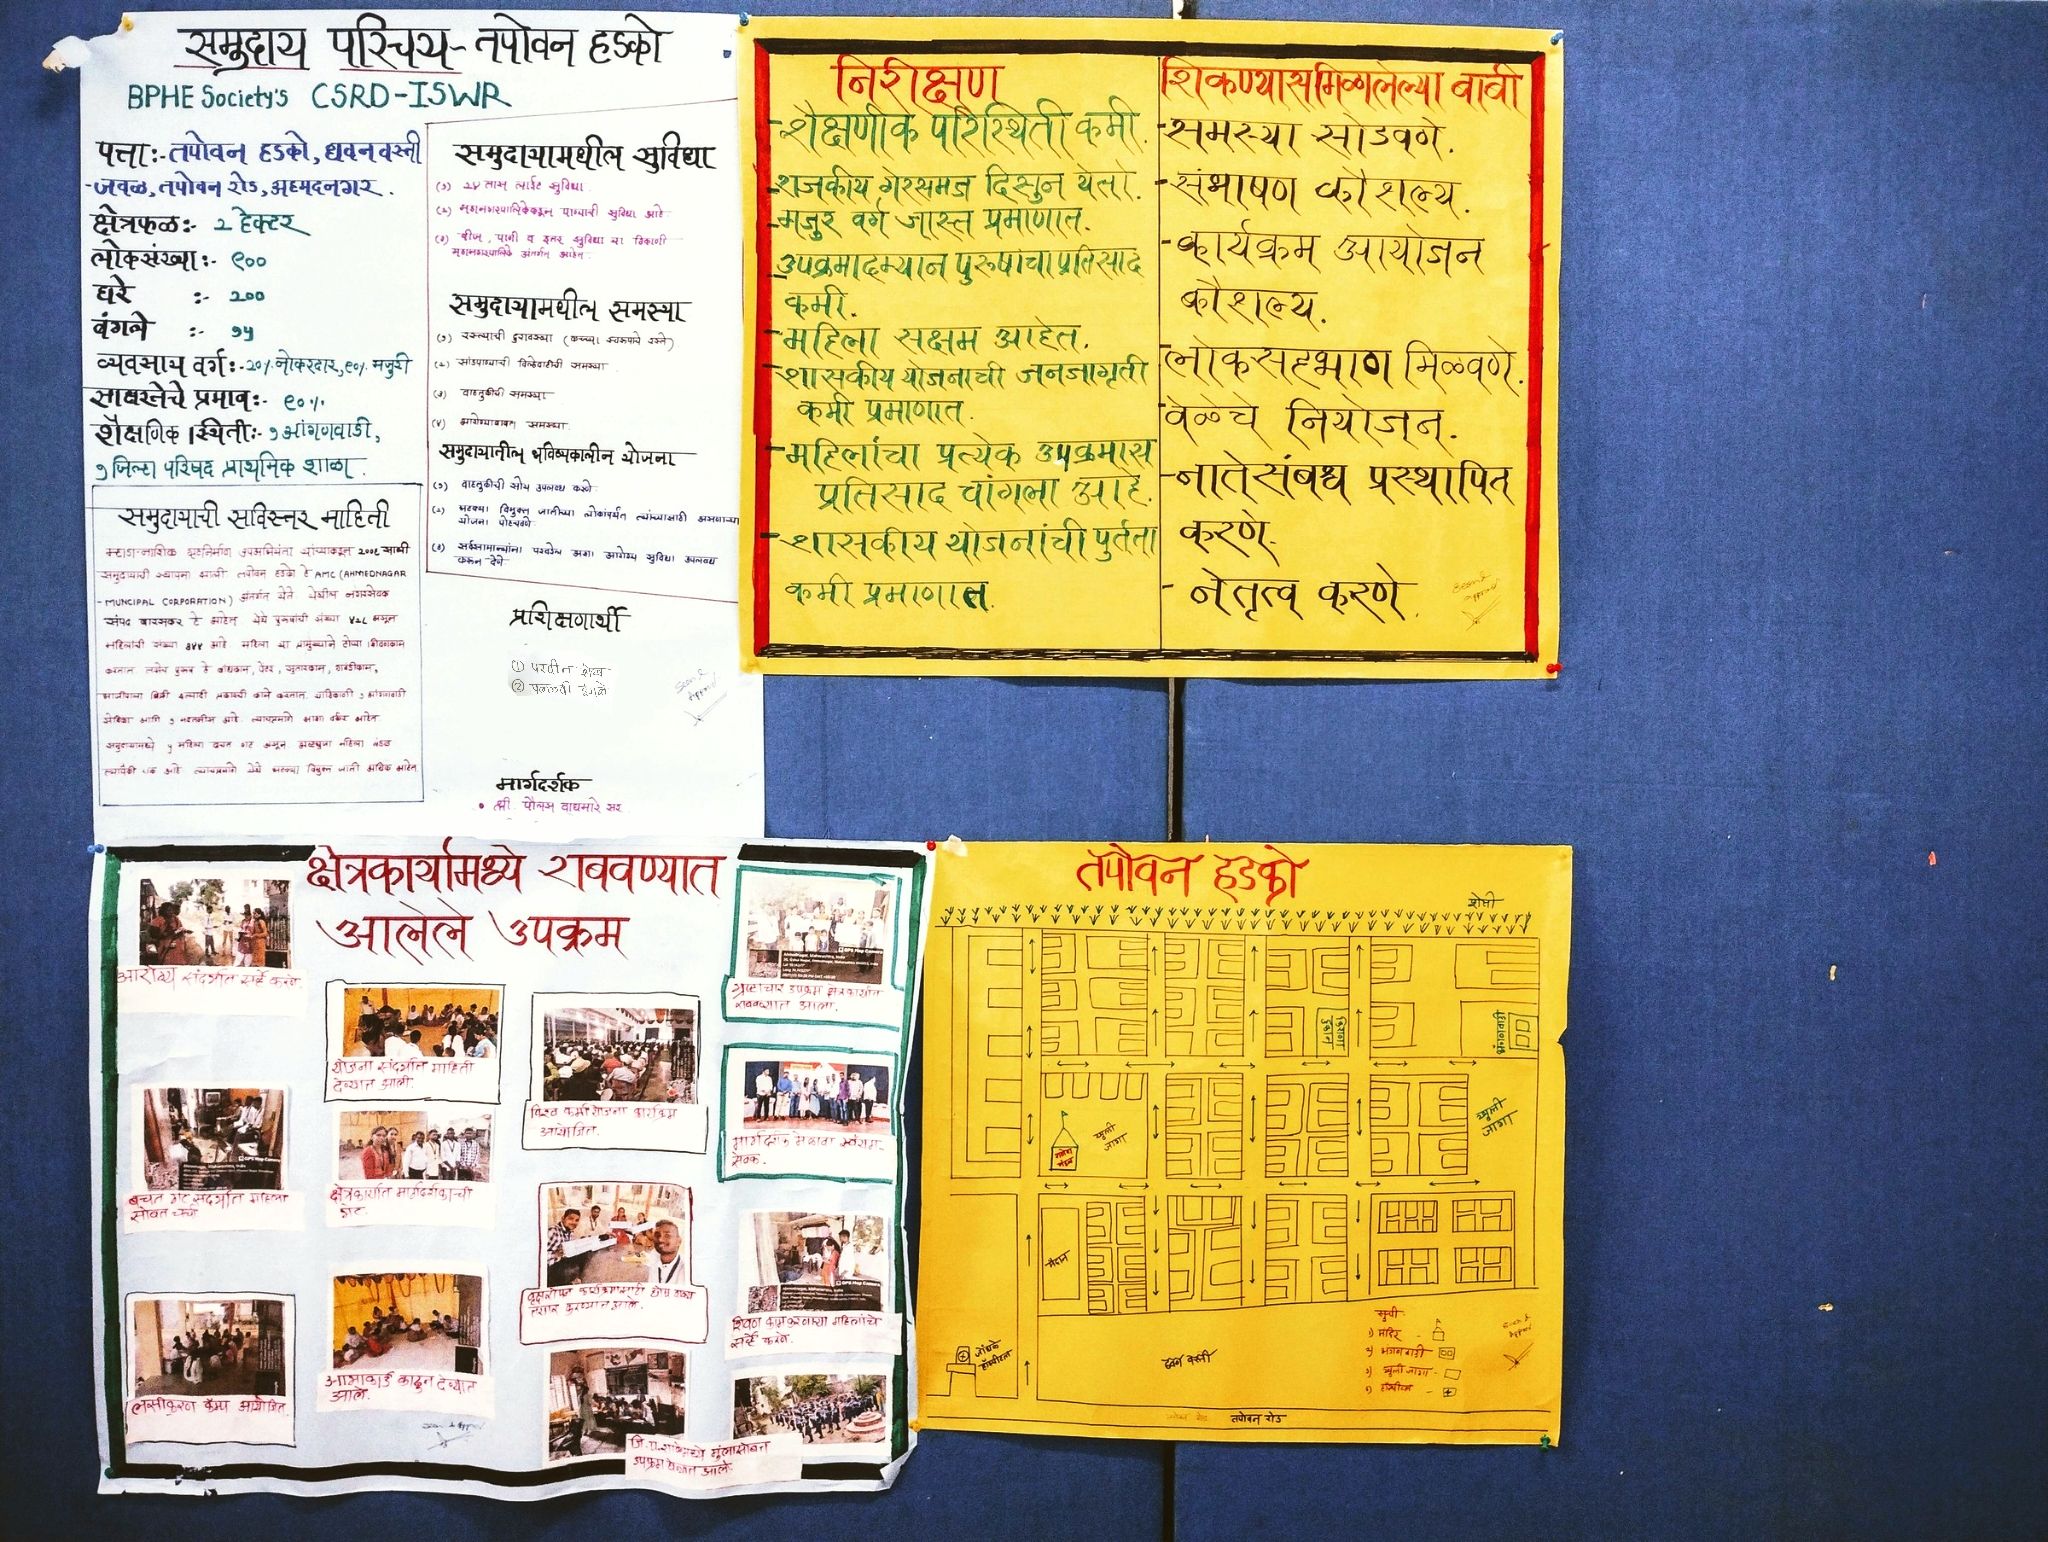 समुदाय परिचय - तपोवन हडको
BPHE Society's CSRD-ISWR
पत्ता:- तपोवन हडको, धवन वस्ती
जवळ, तपोवन रोड, अहमदनगर.
क्षेत्रफळ:- २ हेक्टर
लोकसंख्या:- ९००
घरे :- २००
बंगले :- १५
व्यवसाय वर्ग:- २०% नोकरदार, ८०% मजुरी
साक्षरतेचे प्रमाव:- ९०%
शैक्षणिक स्थिती:- १ आंगणवाडी,
१ जिल्हा परिषद प्राथमिक शाळा.
समुदायाची सविस्तर माहिती
समुदायाची स्थापना झाली तपोवन हडको हे AMC (AHMEDNAGAR
MUNCIPAL CORPORATION) अंतर्गत येते येथील नगरसेवक
संपद बारसकर हे आहेत येथे पुरुषांची संख्या ४५८ असून
समुदायामधील सुविधा
(१) २४ तास लाईट सुविधा.
(२) महानगरपालिकेकडून पाण्याची सुविधा आहे
(३) वीज, पाणी व इतर सुविधा या ठिकाणी
महानगरपालिके अंतर्गत आहेत.
समुदायामधील समस्या
(१) रस्त्याची दुरावस्था (कच्च्या स्वरूपाचे रस्ते)
(२) सांडपाण्याची विल्हेवाटीची समस्या.
(३) वाहतुकीची समस्या
(४) आरोग्याबाबत समस्या.
समुदायातील भविष्यकालीन योजना
(१) वाहतुकीची सोय उपलब्ध करणे
(२) भटक्या विमुक्त जातीच्या लोकांपर्यंत त्यांच्यासाठी असणाऱ्या
योजना पोहचवणे
(३) सर्वसामान्यांना परवडेल अशा आरोग्य सुविधा उपलब्ध
करून देणे
प्रशिक्षणार्थी
① परवीन शेख
② पल्लवी इंगळे
मार्गदर्शक
• श्री. पौलस वाघमारे सर
निरीक्षण
- शैक्षणीक परिस्थिती कमी.
- राजकीय गैरसमज दिसुन येतो.
- मजुर वर्ग जास्त प्रमाणात.
- उपक्रमादम्यान पुरुषांचा प्रतिसाद
कमी.
- महिला सक्षम आहेत.
- शासकीय योजनाची जनजागृती
कमी प्रमाणात.
- महिलांचा प्रत्येक उपक्रमास
प्रतिसाद चांगला आहे.
- शासकीय योजनांची पुर्तता
कमी प्रमाणात.
शिकण्यास मिळालेल्या बाबी
- समस्या सोडवणे.
- संभाषण कौशल्य.
- कार्यक्रम आयोजन
कौशल्य.
- लोकसहभाग मिळवणे.
- वेळेचे नियोजन.
- नातेसंबध प्रस्थापित
करणे.
- नेतृत्व करणे.
क्षेत्रकार्यामध्ये राबवण्यात
आलेले उपक्रम
आरोग्य संदर्भात सर्व्हे करणे.
योजना संदर्भात माहिती
देण्यात आली.
विश्व कर्मा योजना कार्यक्रम
आयोजित.
गृहाचार उपक्रम क्षेत्रकार्यात
राबवण्यात आला.
बचत गट संदर्भात महिला
सोबत चर्चा
क्षेत्रकार्यात मार्गदर्शकाची
भेट.
मार्गदर्शक मेळावा स्वंयम-
सेवक.
लसीकरण कॅम्प आयोजित.
आभाकार्ड काढून देण्यात
आले.
शिवण काम करणाऱ्या महिलांचे
सर्व्हे करणे.
जि.प.शाळेमध्ये मुलांसोबत
उपक्रम घेण्यात आले.
तपोवन हडको
शेती
किराणा
दुकान
अंगणवाडी
खुली
जागा
गणेश
मंदिर
खुली
जागा
मैदान
हॉस्पीटल
धवन वस्ती
सुची
१) मंदिर -
२) अंगणवाडी
३) खुली जागा -
४) हॉस्पीटल -
तपोवन रोड